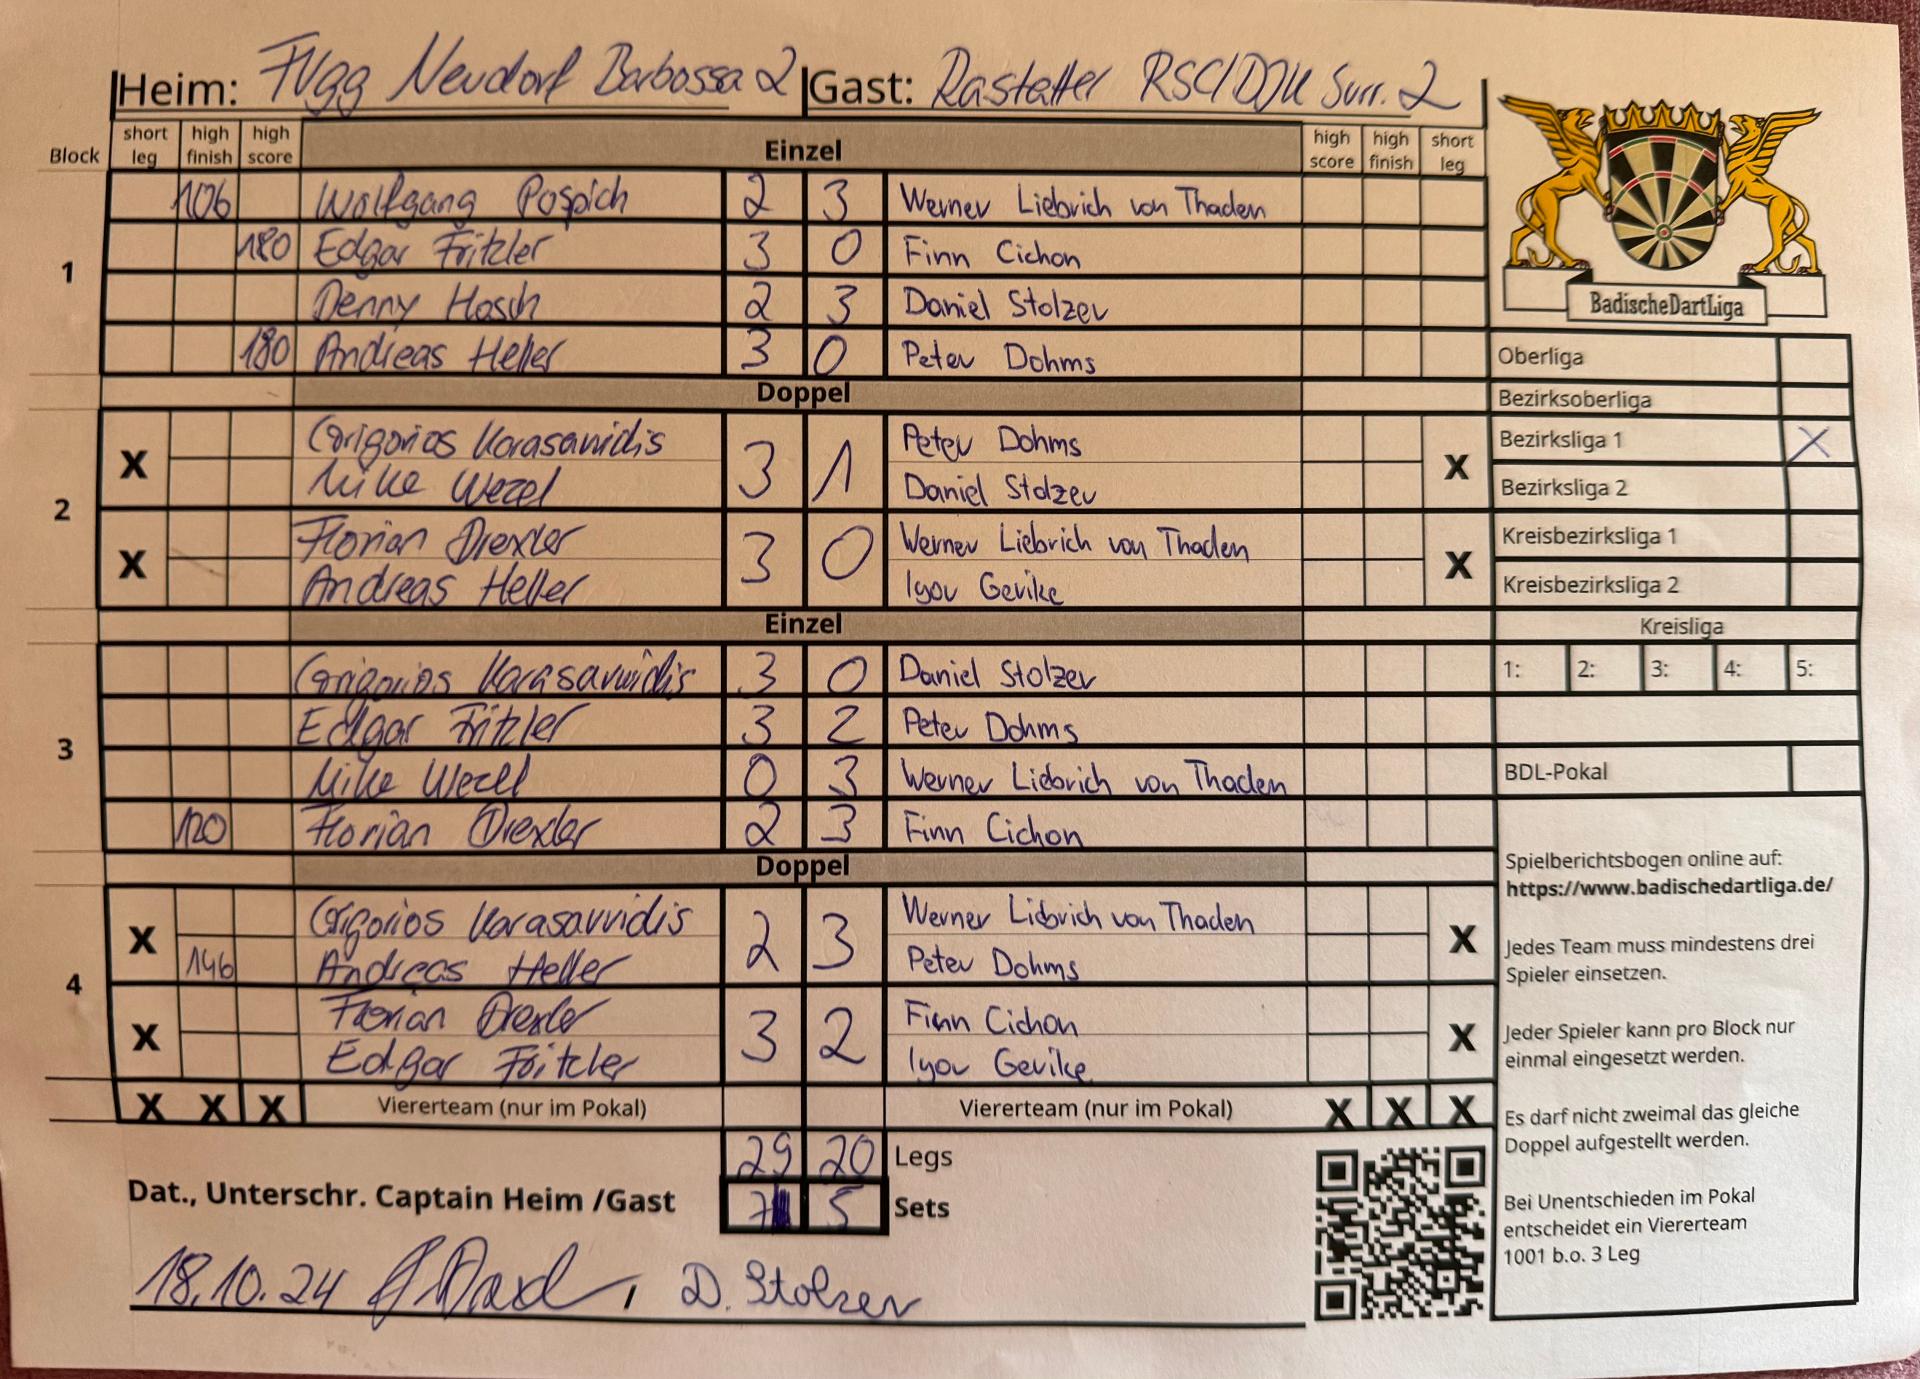 Heim: FVgg Neudorf Barbossa 2 Gast: Rastatter RSC/DJK Surr. 2
Block short leg high finish high score Einzel high score high finish short leg
1
106 Wolfgang Pospich 2 3 Werner Liebrich von Thaden
180 Edgar Fritzler 3 0 Finn Cichon
Denny Hosch 2 3 Daniel Stolzer
180 Andreas Heller 3 0 Peter Dohms
Doppel
2
X Grigorios Karasavvidis 3 1 Peter Dohms X
Mike Wezel Daniel Stolzer
X Florian Drexler 3 0 Werner Liebrich von Thaden X
Andreas Heller Igor Gerike
Einzel
3
Grigorios Karasavvidis 3 0 Daniel Stolzer
Edgar Fritzler 3 2 Peter Dohms
Mike Wezel 0 3 Werner Liebrich von Thaden
120 Florian Drexler 2 3 Finn Cichon
Doppel
4
X Grigorios Karasavvidis 2 3 Werner Liebrich von Thaden X
146 Andreas Heller Peter Dohms
X Florian Drexler 3 2 Finn Cichon X
Edgar Fritzler Igor Gerike
X X X Viererteam (nur im Pokal) Viererteam (nur im Pokal) X X X
29 20 Legs
Dat., Unterschr. Captain Heim /Gast 7 5 Sets
18.10.24 , D. Stolzer
BadischeDartLiga
Oberliga
Bezirksoberliga
Bezirksliga 1 X
Bezirksliga 2
Kreisbezirksliga 1
Kreisbezirksliga 2
Kreisliga
1: 2: 3: 4: 5:
BDL-Pokal
Spielberichtsbogen online auf:
https://www.badischedartliga.de/
Jedes Team muss mindestens drei
Spieler einsetzen.
Jeder Spieler kann pro Block nur
einmal eingesetzt werden.
Es darf nicht zweimal das gleiche
Doppel aufgestellt werden.
Bei Unentschieden im Pokal
entscheidet ein Viererteam
1001 b.o. 3 Leg